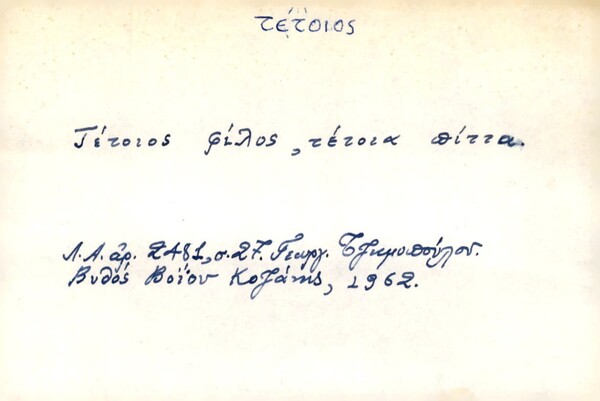 τέτοιος
Τέτοιος φίλος, τέτοια πίττα.
Λ.Α. ἀρ. 2481, σ. 27. Γεωργ. Τζημοπούλου.
Βυθός Βοΐου Κοζάνης, 1962.